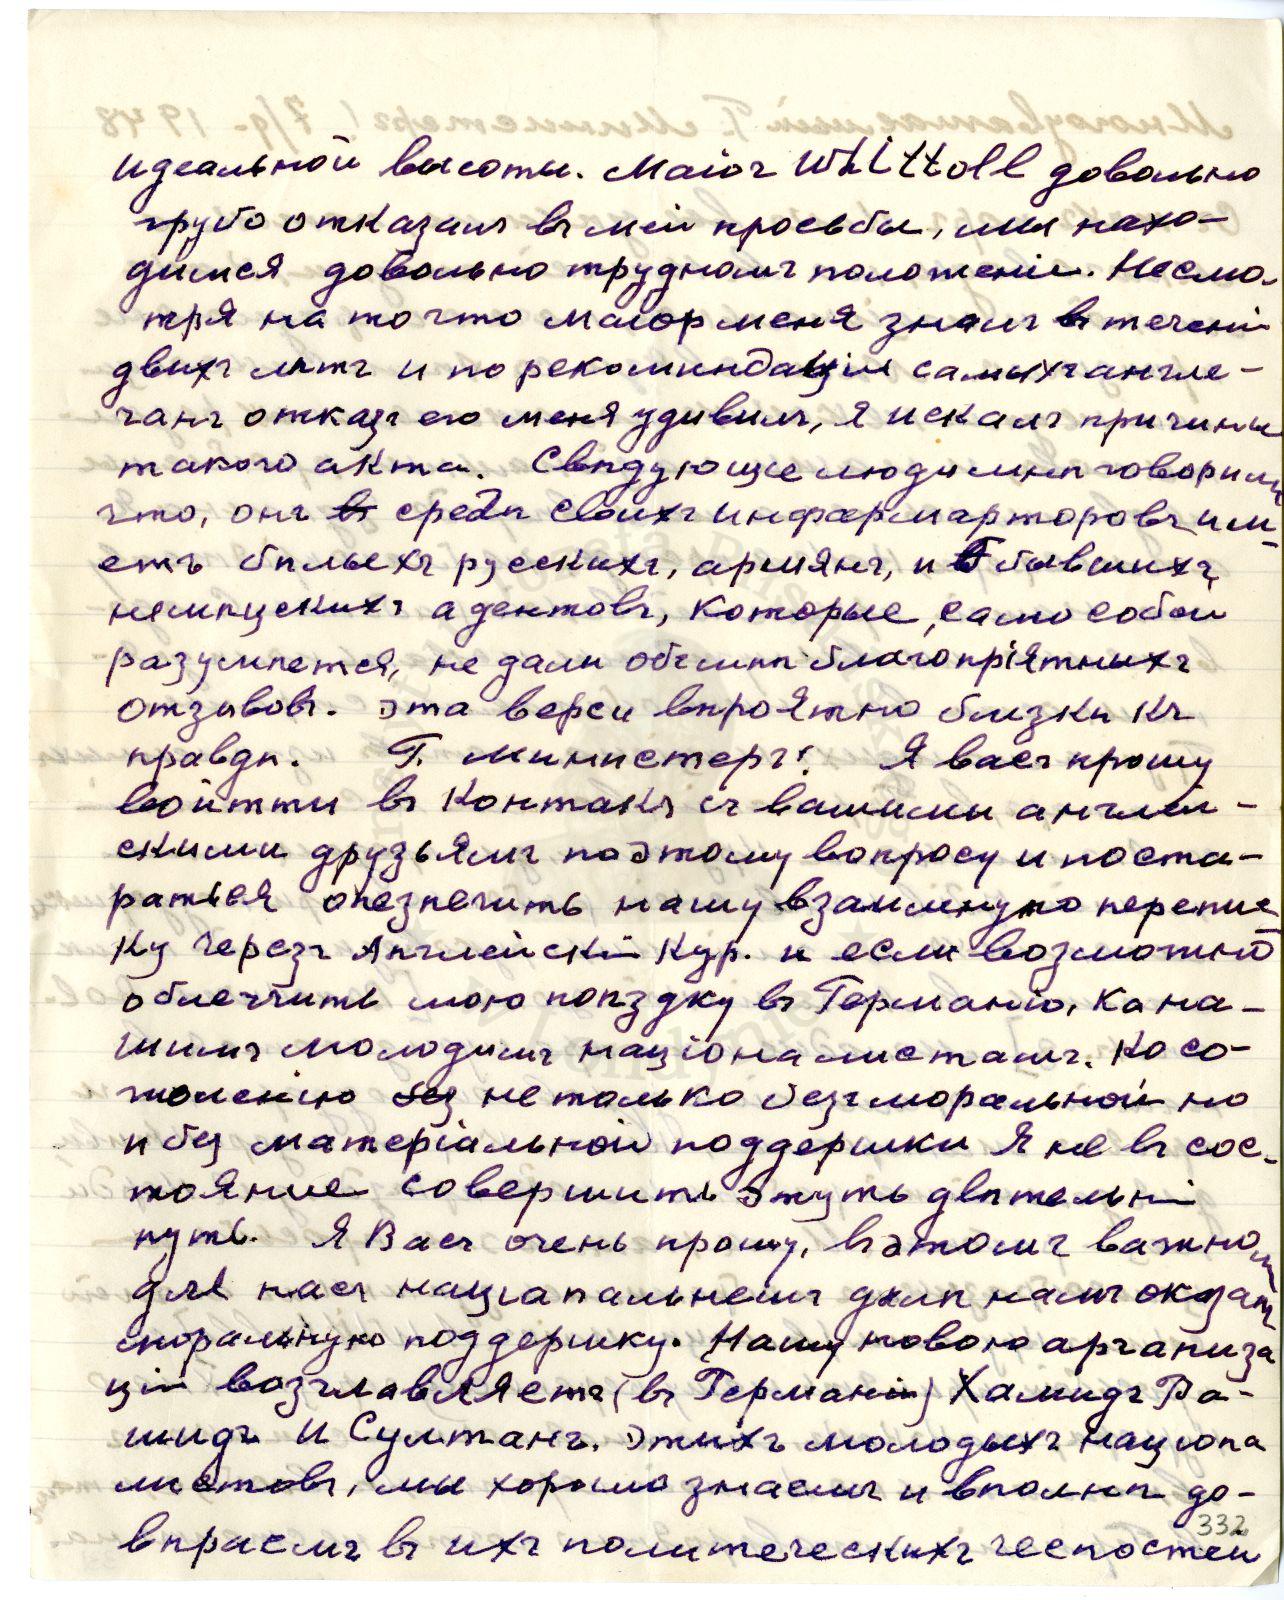 идеальной высоты. Маіоъ Whittoll довольно
грубо отказалъ въ мей просьбы, мы нахо-
димся довольно труднамъ положеніи. Несмо-
тря на то что маіор меня зналъ в течені
двихъ лѣтъ и по рекоминдаціи самыхъ англе-
чанъ отказъ его меня удивилъ, я искалъ причины
такого акта. Свѣдующіе люди мнѣ говорили
что, онъ средѣ своихъ информарторовъ им-
етъ бѣлыехъ русскихъ, армянъ, и бывшихъ
нямпцускихъ адентовъ, которые, само собой
разумѣется, не дали обо мнѣ благопріятныхъ
отзывовъ. эта верси вѣроятно близкѣ къ
правдѣ. Г. Министеръ! Я васъ прошу
войтти въ контакъ съ вашими англій-
скими друзьямъ по этому вопросу и поста-
раться опезпечить нашу взаимную перепис
ку черезъ Англейскій Кур. и если возможно
облегчить мою поѣздку въ Германію, ка на-
шимъ молодымъ націоналистамъ. Ко со-
жолению не только безъ моральной но
и без матеріальной поддержки Я не въ сос-
тояние совершить этуть двительні
путь. Я Васъ очень прошу, въ этомъ важном
для насъ націапальнемъ дѣлѣ намъ оказать
моральную поддержку. Нашу новою арганиза
ціи возглавляетъ (въ Германіи) Хамидъ Ра-
шидъ и Султанъ. Этихъ молодыхъ націона
листовъ, мы хорошо знаемъ и вполнѣ до-
вѣраемъ въ ихъ политеческихъ чеспостеи
332